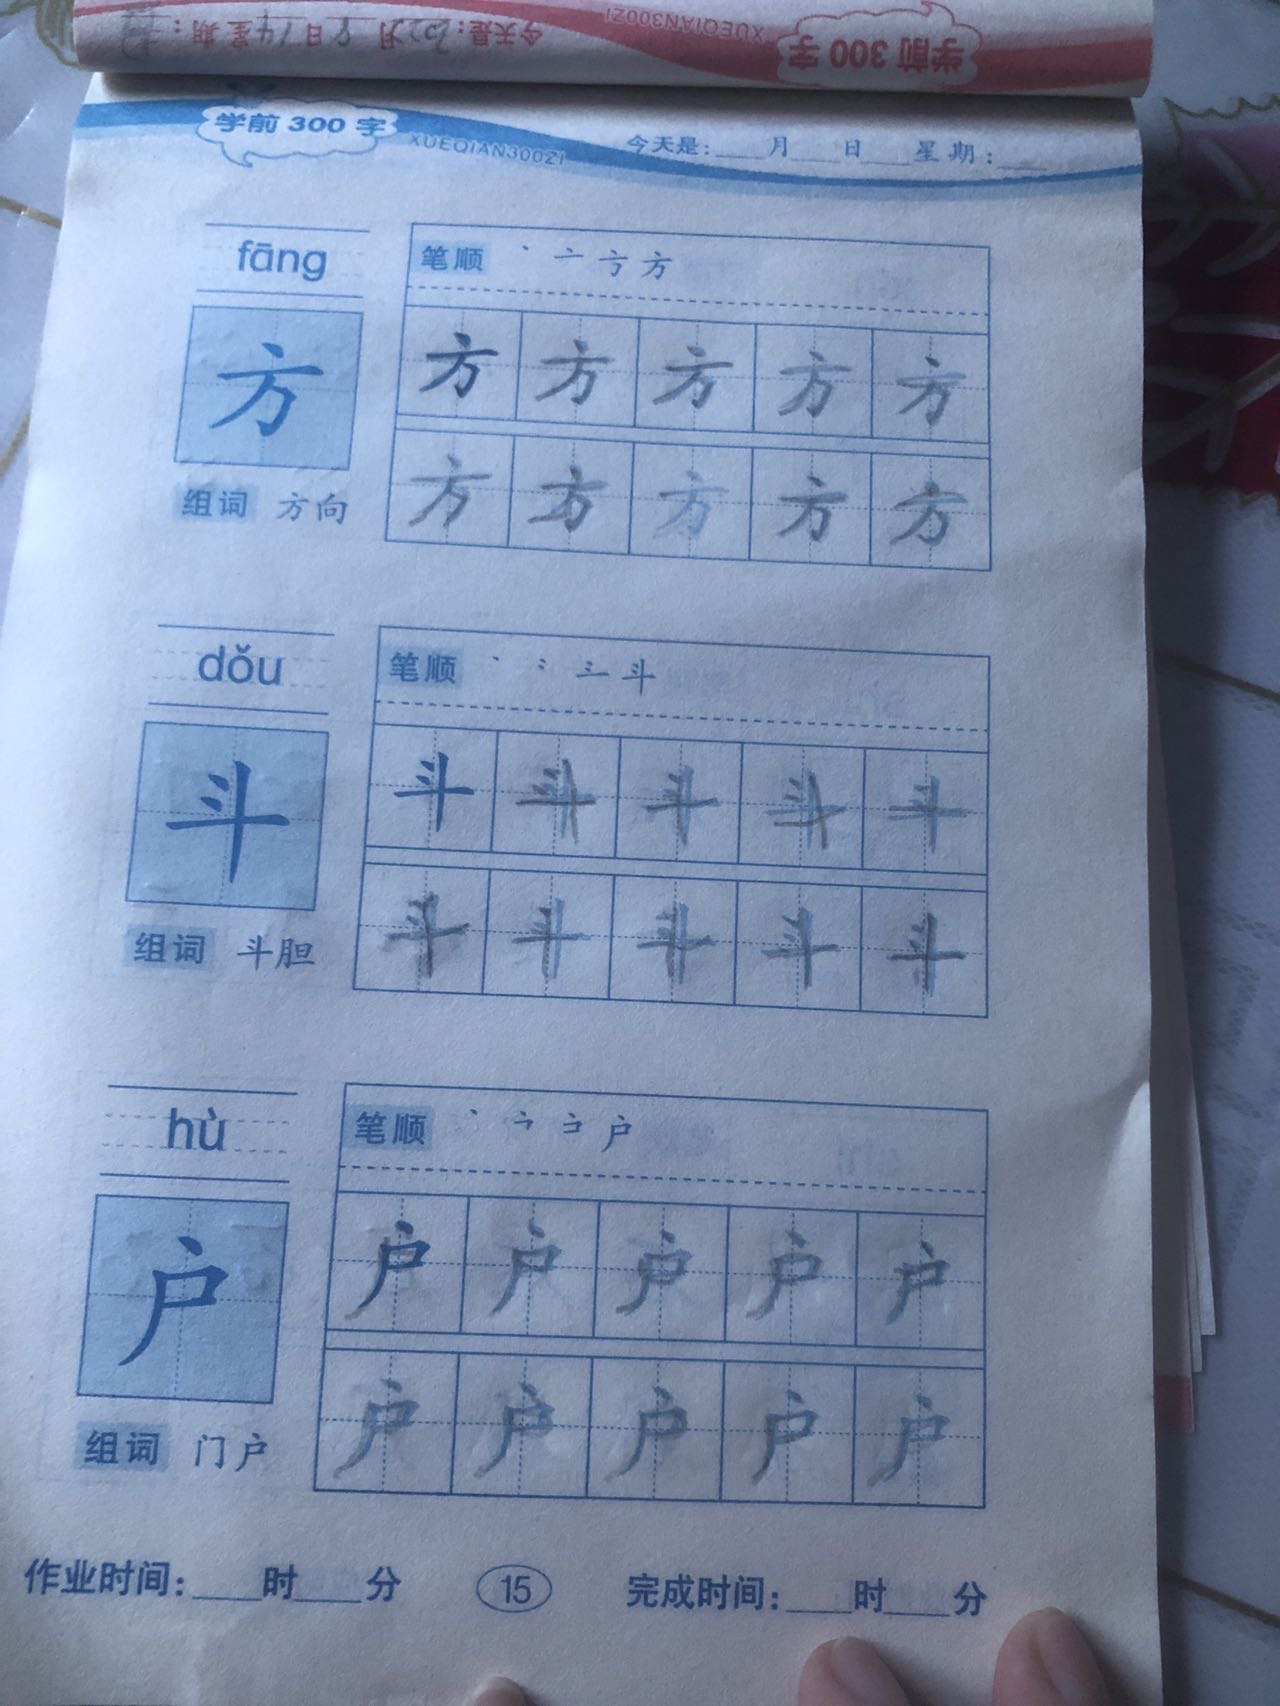 学前 300 字
XUEQIAN300ZI
今天是: 月 日 星期:
学前 300 字
XUEQIAN300ZI
今天是:___月___日___星期:___
fāng
笔顺 丶 亠 亍 方
方
方 方 方 方 方
方 方 方 方 方
组词 方向
dǒu
笔顺 丶 ⺀ 斗
斗
斗 斗 斗 斗 斗
斗 斗 斗 斗 斗
组词 斗胆
hù
笔顺 丶 户
户
户 户 户 户 户
户 户 户 户 户
组词 门户
作业时间:___时___分 15 完成时间:___时___分